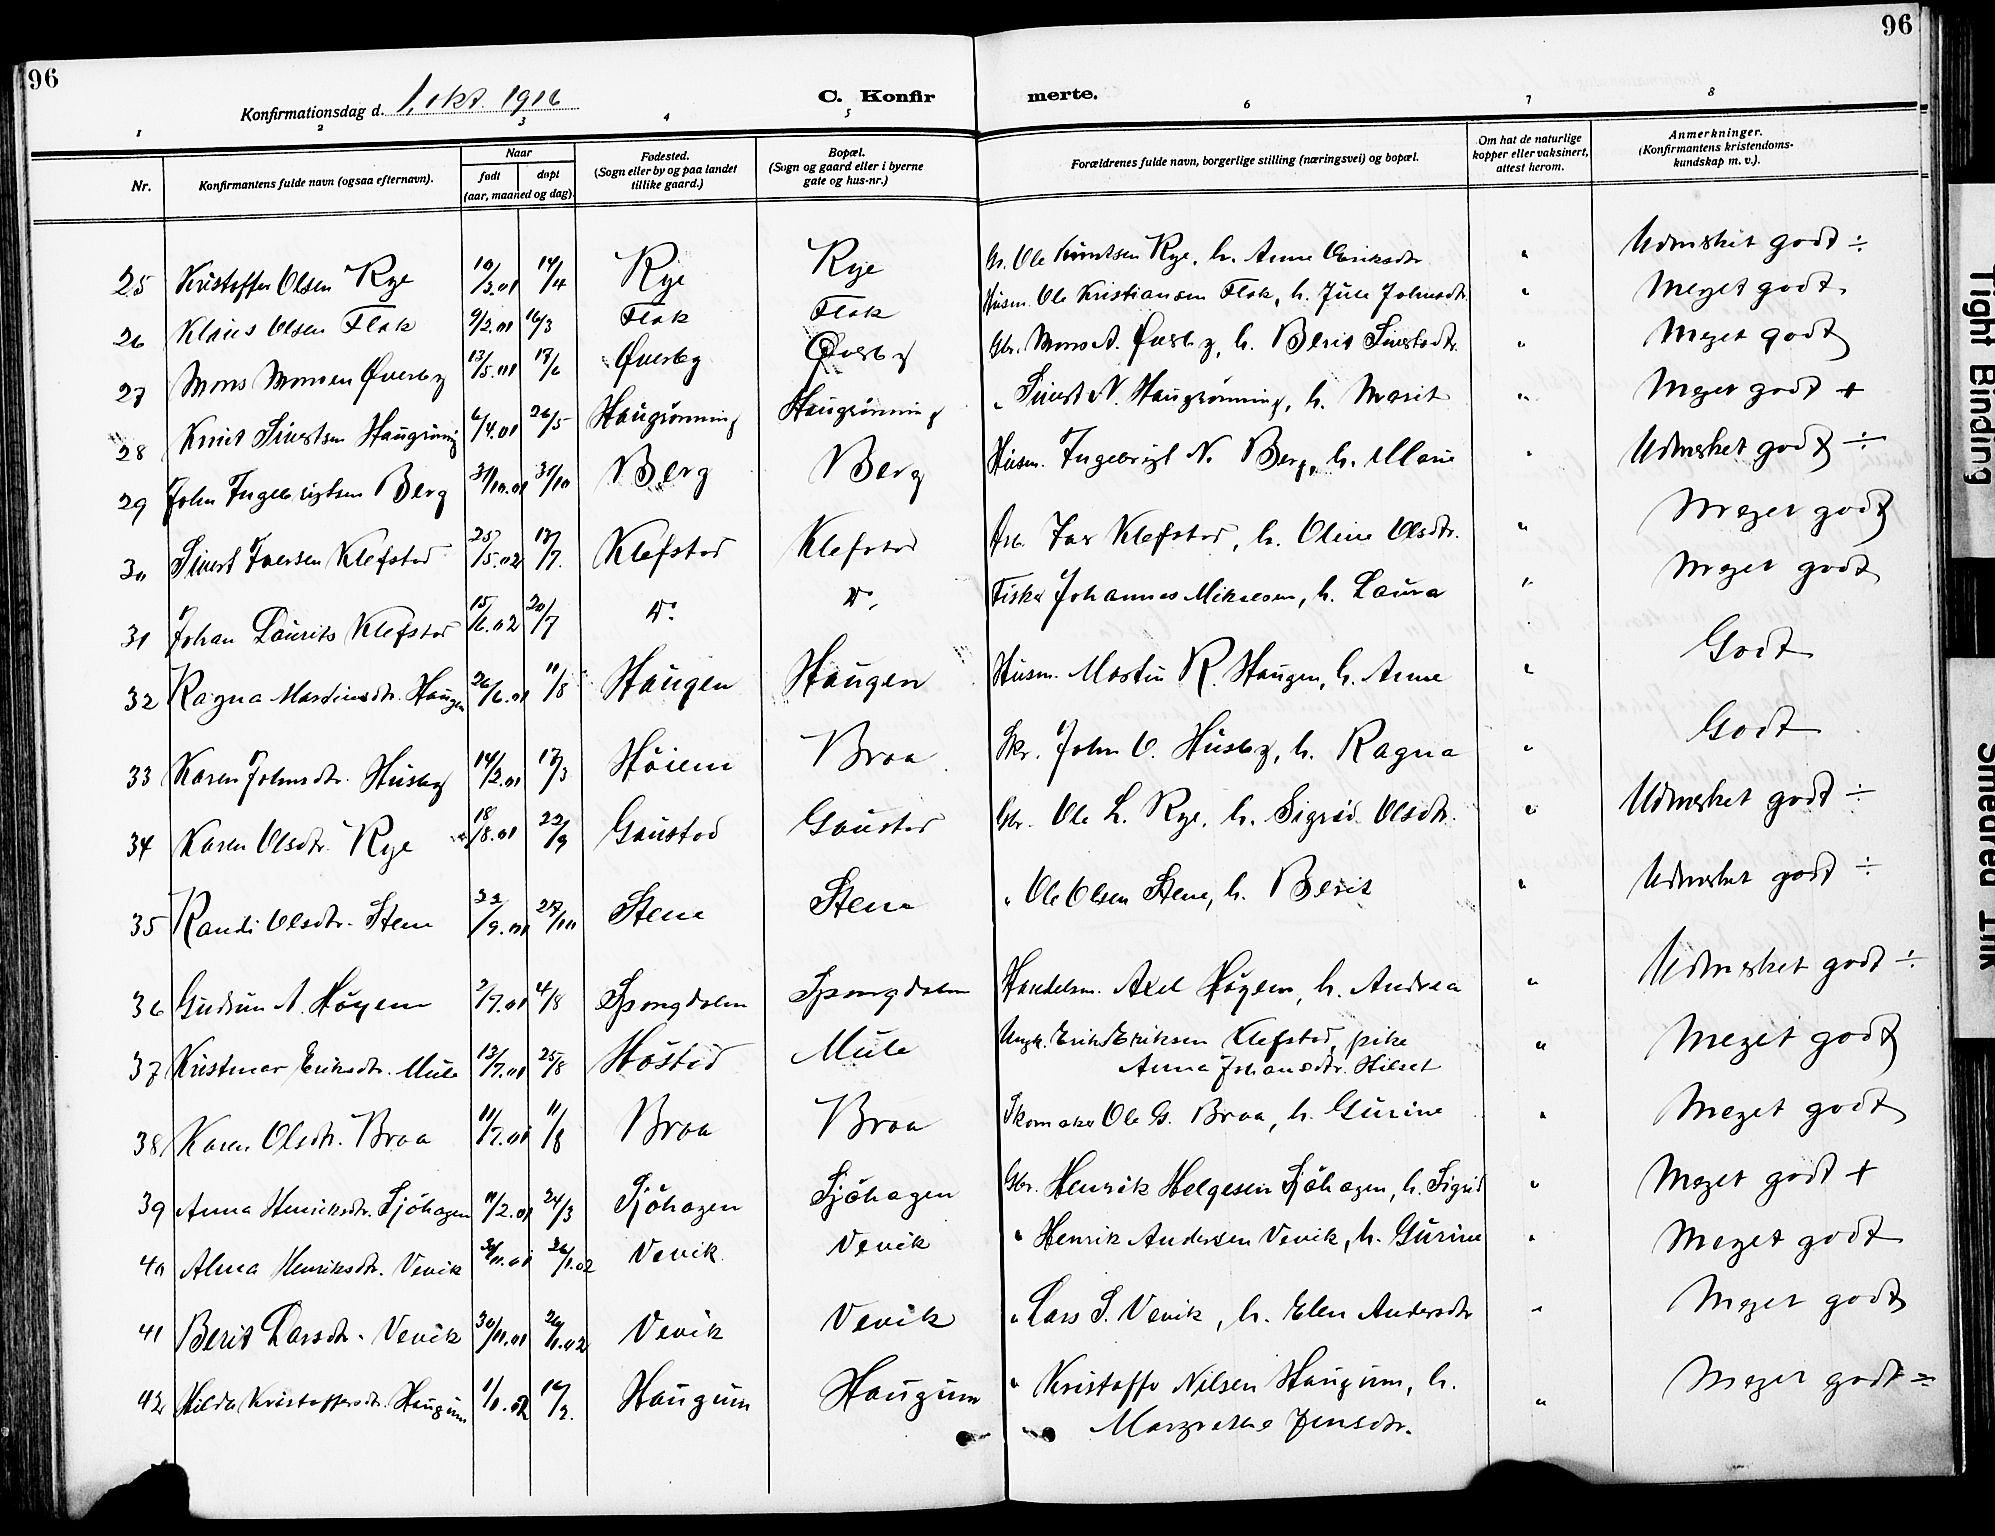 96
96
Konfirmationsdag d. 1. okt. 1916
C. Konfir
merte.
1 2 3 4 5 6 7 8
Nr.
Konfirmantens fulde navn (ogsaa efternavn).
Naar
født
døpt
(aar, maaned og dag).
Fødested.
(Sogn eller by og paa landet
tillike gaard.)
Bopæl.
(Sogn og gaard eller i byerne
gate og hus-nr.)
Forældrenes fulde navn, borgerlige stilling (næringsvei) og bopæl.
Om hat de naturlige
kopper eller vaksinert,
attest herom.
Anmerkninger.
(Konfirmantens kristendoms-
kundskap m. v.).
25 Kristoffer Olsen Rye 10/3.01 14/4 Rye Rye Gr. Ole Knutsen Rye, h. Anne Eriksdtr. " Udmerket godt ÷
26 Klaus Olsen Flak 9/2.01 16/3 Flak Flak Husm. Ole Kristiansen Flak, h. Julie Johnsdtr. " Meget godt
27 Mons Monsen Øverby 13/5.01 17/6 Øverby Øverby Gbr. Mons A. Øverby, h. Berit Sivertsdtr. " Meget godt
28 Knut Sivertsen Haugrønning 6/4.01 26/5 Haugrønning Haugrønning " Sivert N. Haugrønning, h. Marit " Meget godt +
29 John Ingebrigtsen Berg 3/10.01 31/10 Berg Berg Husm. Ingebrigt N. Berg, h. Marie " Udmerket godt ÷
30 Sivert Iversen Klefstad 25/5.02 13/7. Klefstad Klefstad Iver Klefstad, h. Oline Olsdtr. " Meget godt
31 Johan Laurits Klefstad 15/6.02 20/7 Do. Do. Fisker Johannes Mikalsen, h. Laura " Meget godt
32 Ragna Martinsdtr. Haugen 26/6.01 11/8 Haugen Haugen Husm. Martin R. Haugen, h. Anne " Godt
33 Karen Johnsdtr. Husby 14/2.01 17/3 Høiem Braa Skr. John O. Husby, h. Ragna " Godt
34 Karen Olsdtr. Rye 18/8.01 22/9 Gaustad Gaustad Gbr. Ole L. Rye, h. Sigrid Olsdtr. " Udmerket godt ÷
35 Randi Olsdtr. Stene 22/9.01 27/10 Stene Stene " Ole Olsen Stene, h. Berit " Udmerket godt ÷
36 Gudrun A. Høyem 2/7.01 4/8 Spongdalen Spongdalen Handelsm. Axel Høyem, h. Andrea " Udmerket godt ÷
37 Kristmar Eriksdtr. Mule 13/7.01 25/8 Høstad Mule Ungk. Erik Eriksen Klefstad, pike " Meget godt
Anna Johansdtr. Hilset
38 Karen Olsdtr. Braa 11/7.01 11/8 Braa Braa Skomaker Ole G. Braa, h. Gurine " Meget godt
39 Anna Henriksdtr. Sjöhagen 11/2.01 24/3 Sjöhagen Sjöhagen Gbr. Henrik Helgesen Sjöhagen, h. Sigrid " Meget godt +
40 Alma Henriksdtr. Venik 30/11.01 26/1.02 Venik Venik " Henrik Andersen Venik, h. Gurine " Meget godt
41 Berit Larsdtr. Venik 30/11.01 26/1.02 Venik Venik " Lars S. Venik, h. Elen Andersdtr " Meget godt
42 Hilda Kristoffersdtr. Haugum 1/1.02 16/2. Haugum Haugum " Kristoffer Nilsen Haugum, h. " Meget godt ÷
Margrethe Jensdtr.
Tight Binding
Smeared Ink